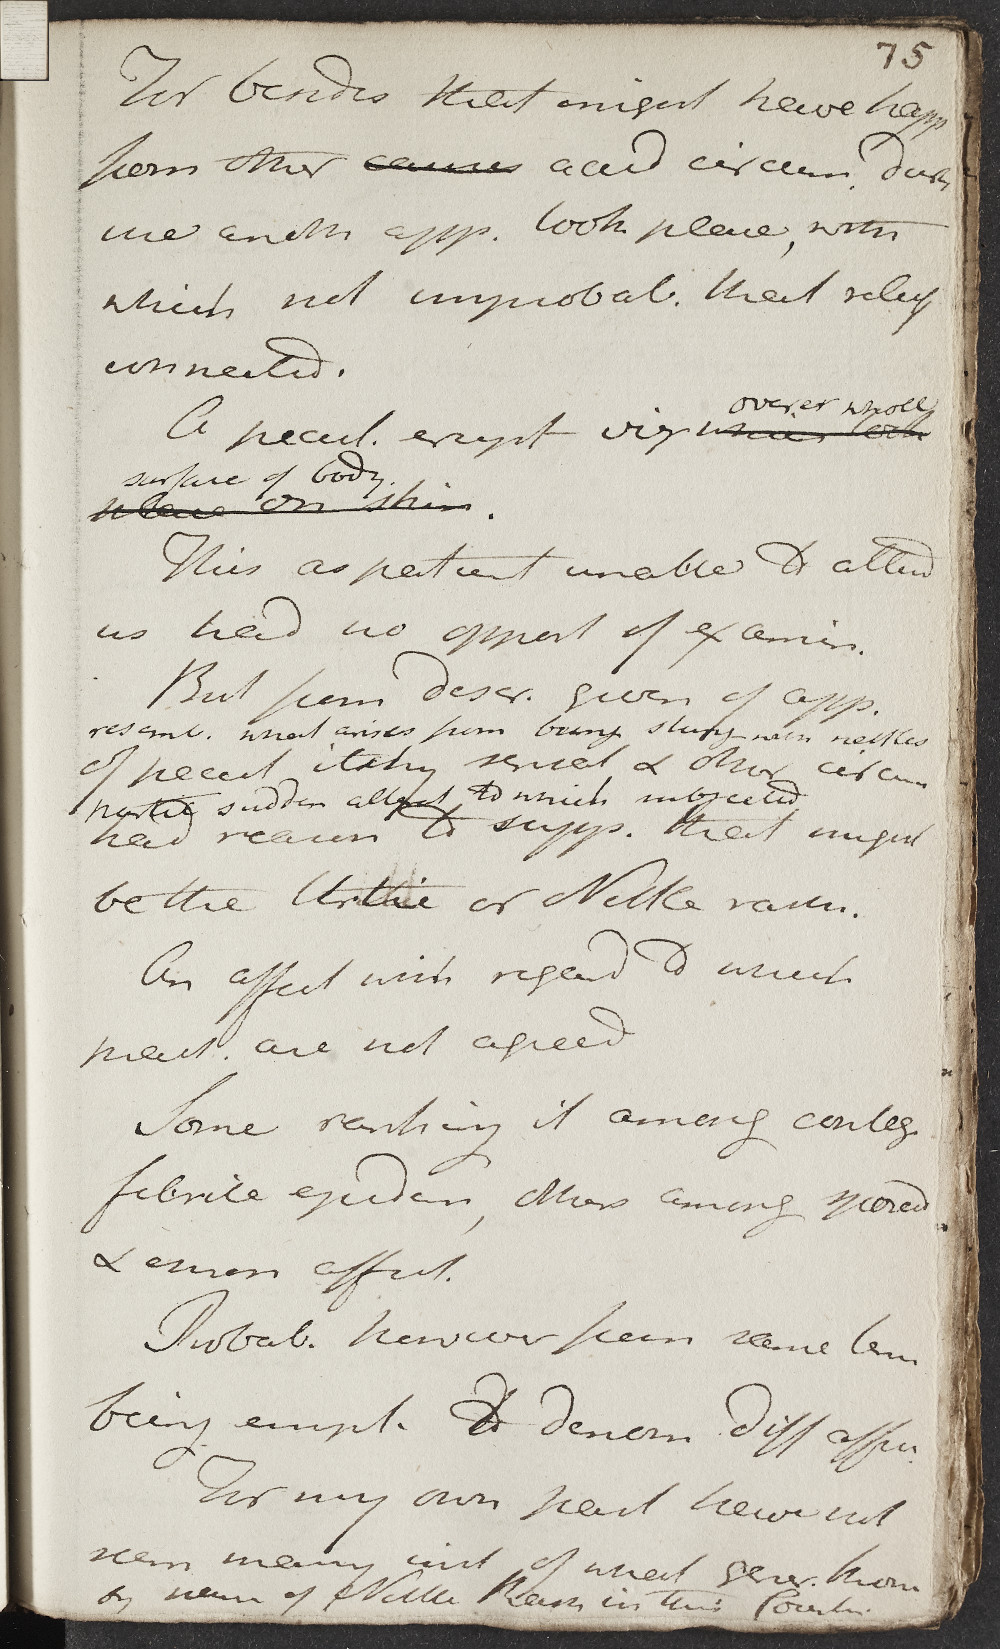 75
For besides that might have happ
from other causes acid circum. durin
me anoth app. took place, with
which not improbab. that relat
connected.
over wholl
A peculi. erupt viz which took
surface of body.
place on skin.
This as patient unable to attend
us had no opport of examin.
But from descr. given of app.
resemb. what arises from being stung with nettles
of peculi itchy sensat & other circum
partic sudden attack to which subjected
had reason to supp. that might
be the Urtic or Nettle rash.
An affect with regard to which
pract. are not agreed
Some ranking it among contag
febrile epidem, others among sporad
& anom affect.
Probab. however from same term
being empl. to denom diff affec.
For my own part have not
seen many inst of what gener. known
by name of Nettle Rash in this Countr.